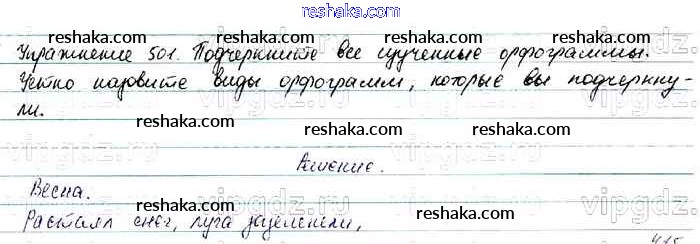 reshaka.com
reshaka.com reshaka.com
Упражнение 501. Подчеркните все изученные орфограммы.
reshaka.com reshaka.com
Устно назовите виды орфограмм, которые вы подчеркну-
ли.
reshaka.com reshaka.com
vipgdz.ru vipgdz.ru
Решение.
reshaka.com reshaka.com
Весна.
vipgdz.ru vipgdz.ru
reshaka.com reshaka.com
Растаял снег, луга зазеленели,
415